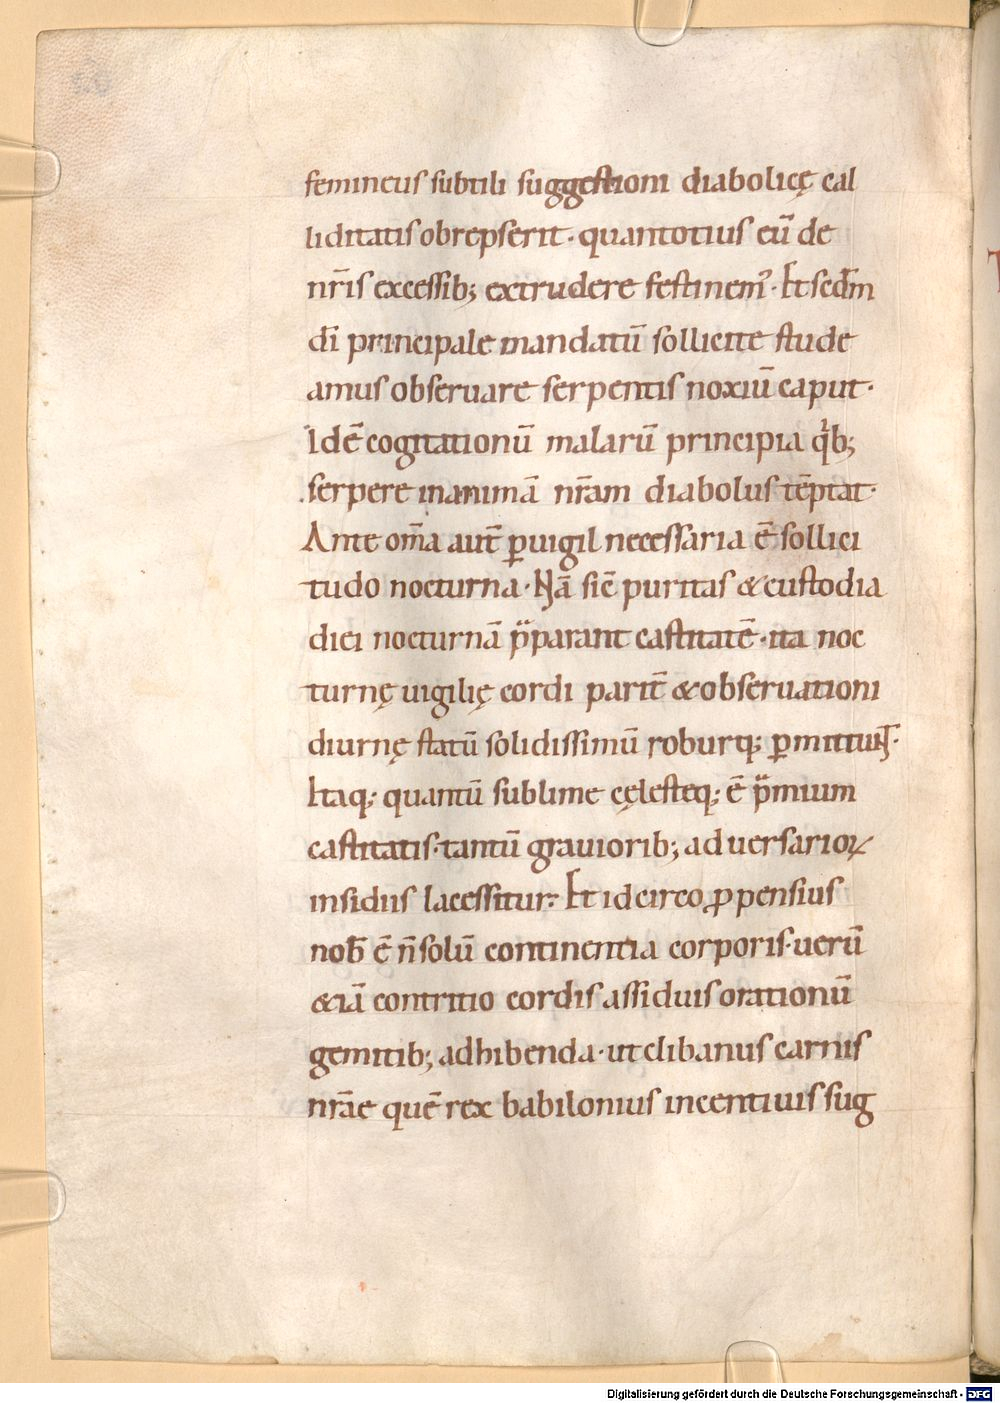 femineus subtili suggestioni diabolicę cal
liditatis obrepserit· quantotius eū de
nr̄is excessib; extrudere festinem᷒· Et scd̄m
dī principale mandatū sollicite stude
amus obseruare serpentis noxiū caput·
Idē cogitationū malarū principia qͥb;
serpere in animā nr̄am diabolus tēptat·
Ante om̄a aut̄ ꝑuigil necessaria ē sollici
tudo nocturna· Nā sic̄ puritas & custodia
diei nocturnā p̈parant castitatē· ita noc
turnę uigilię cordi parit̄ & obseruationi
diurnę statū solidissimū roburq; ꝑmittunt·
Itaq; quantū sublime cęlesteq; ē p̈mium
castitatis· tantū grauiorib; aduersarioꝝ
insidiis lacessitur· Et idcirco ꝓpensius
nob̄ ē n̄ solū continentia corporis· uerū
&iā contritio cordis assiduis orationū
gemitib; adhibenda· ut clibanus carnis
nr̄ae quē rex babilonius incentiuis sug
Digitalisierung gefördert durch die Deutsche Forschungsgemeinschaft - DFG